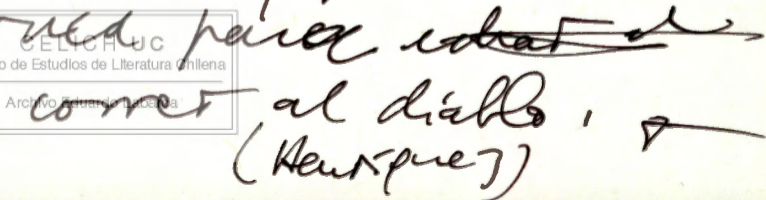 para echar a
CELICH UC
o de Estudios de Literatura Chilena
Archivo Eduardo Labarca
correr al diablo.
(Henríquez)